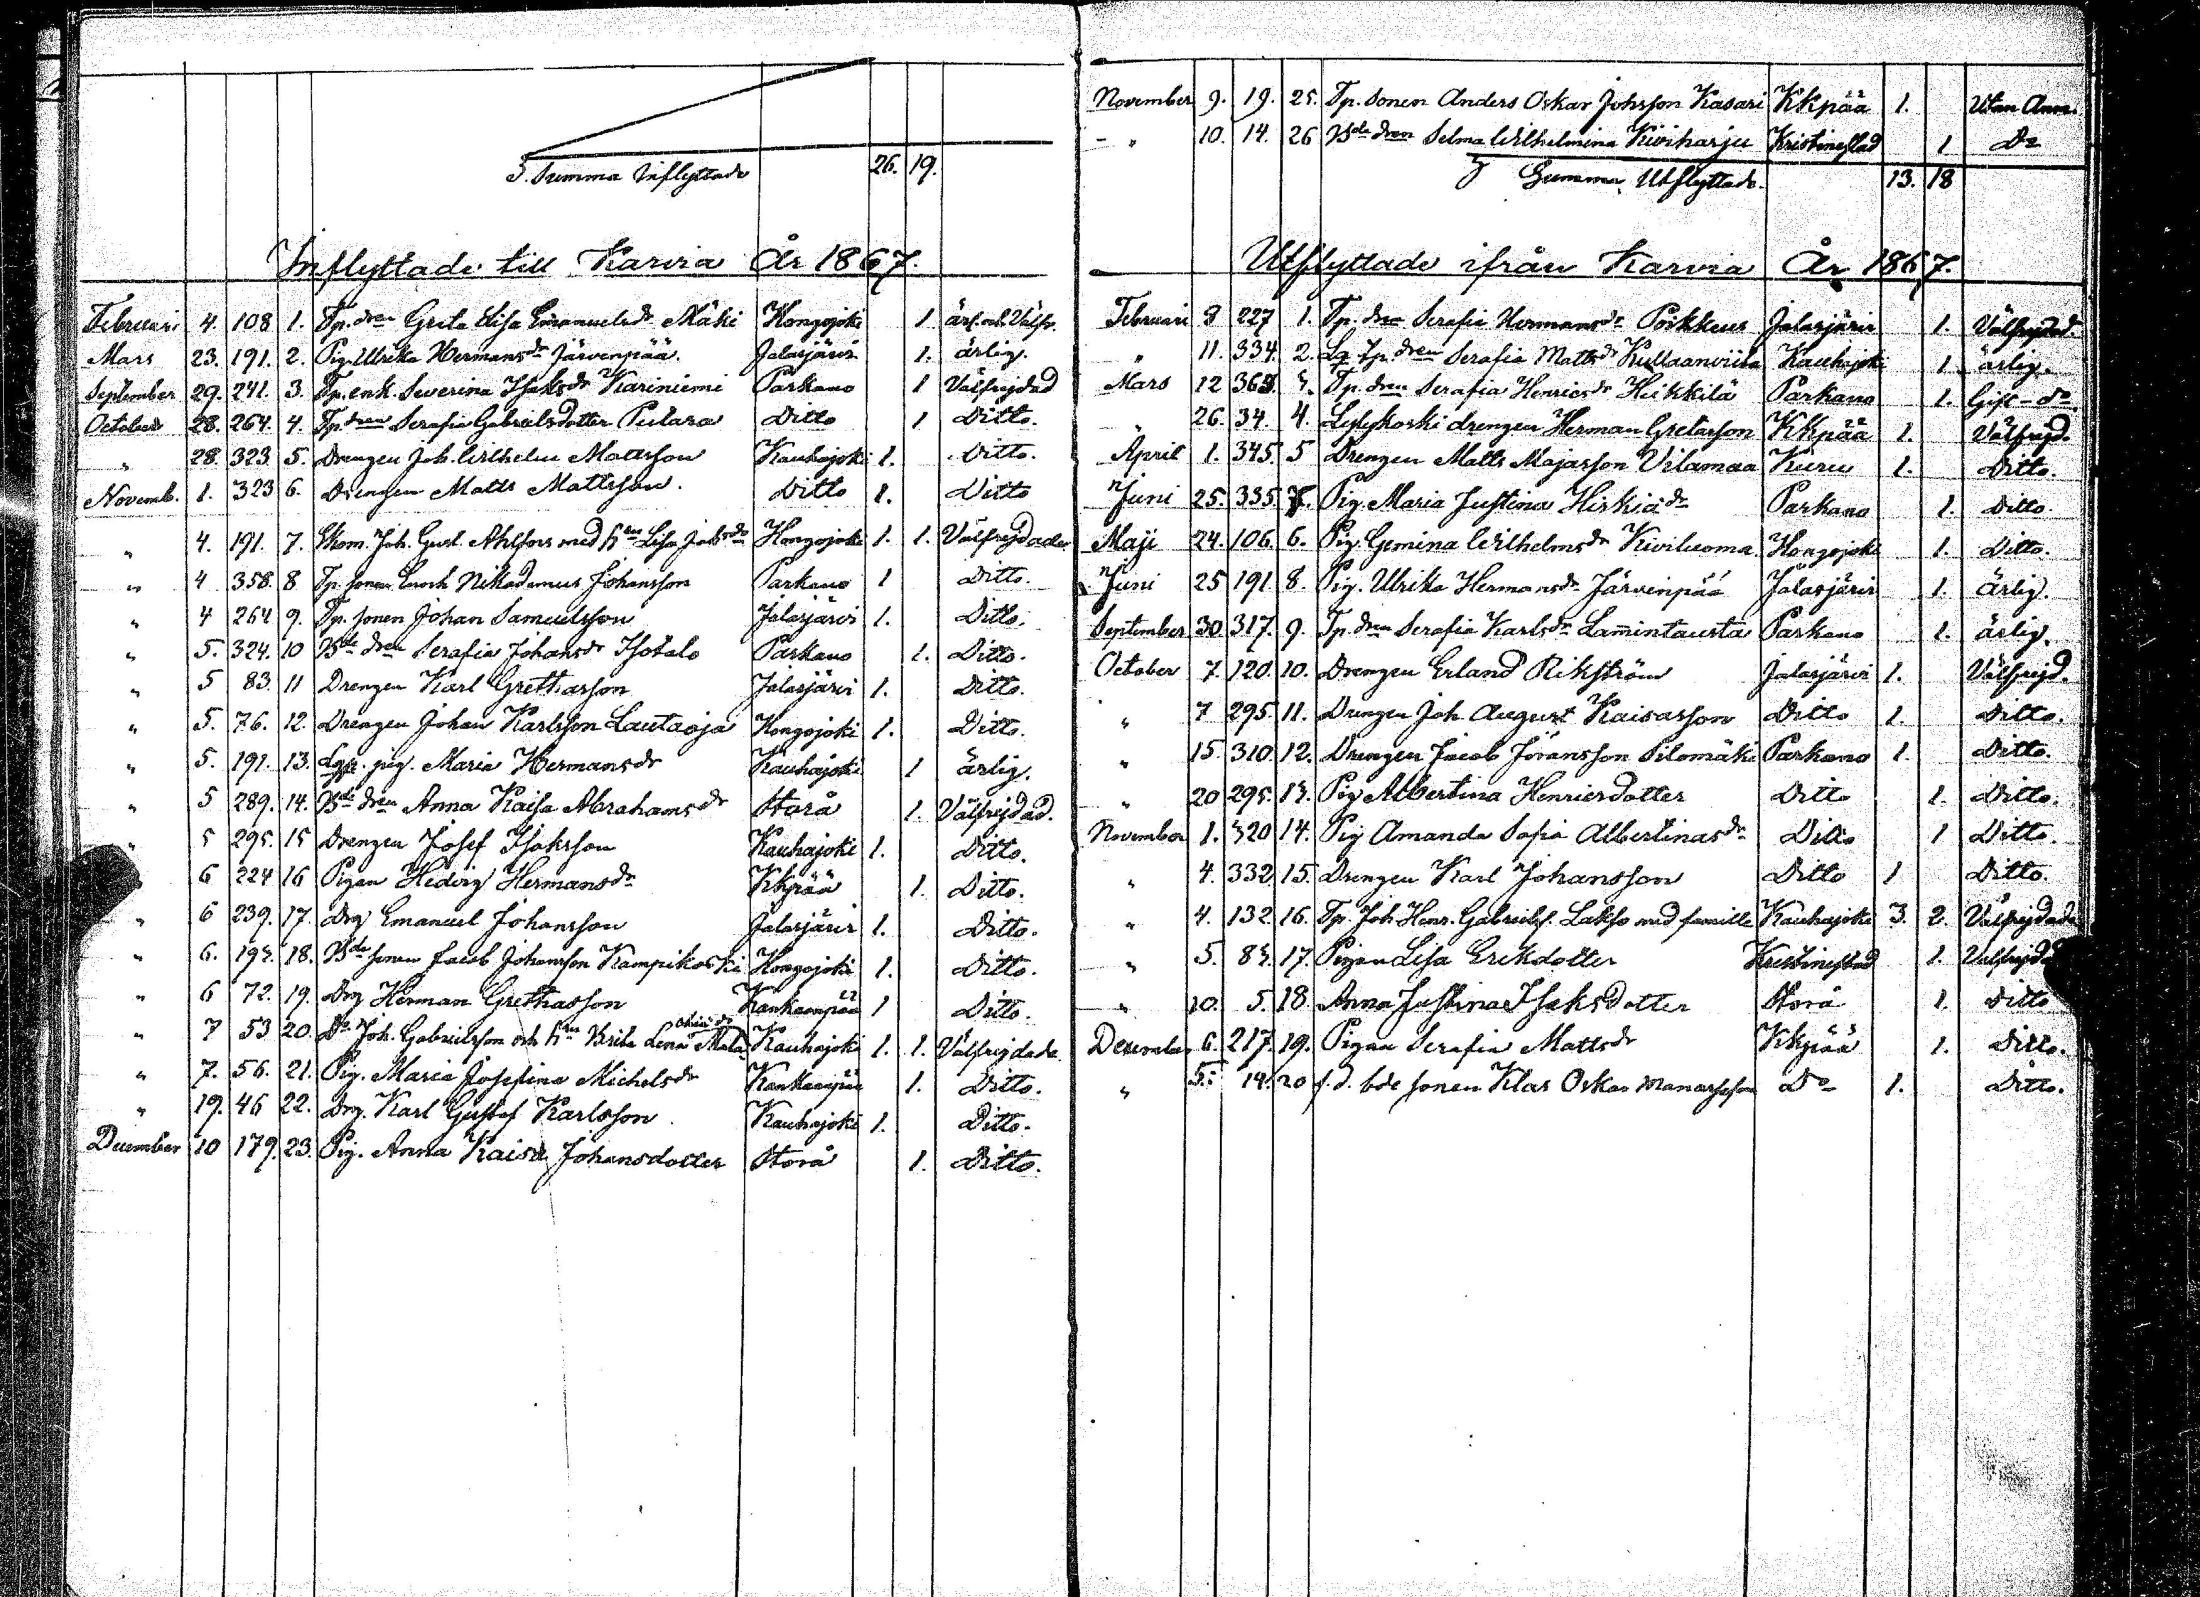 Summa Inflyttade 26. 19.
Inflyttade till Karvia År 1867.
Februari 4. 108 1. Tp. dren Greta Lisa Emanuelsdr Mäki Hongojoki 1 ärl. och Välfr.
Mars 23. 191. 2. Pig. Ulrika Hermansdr Järvenpää. Jalasjärvi 1. ärlig.
September 29. 241. 3. Tp. enk. Severina Isaksdr Kariniemi Parkano 1 Välfrejdad
October 28. 264. 4. Tp. dren Serafia Gabrielsdotter Ditto 1 Ditto.
" 28. 323. 5. Drengen Joh. Wilhelm Mattsson Kauhajoki 1. Ditto.
Novemb. 1. 323 6. Drengen Matts Mattsson. Ditto 1. Ditto
" 4. 191. 7. Joh. Gust. Ahlfors med hu Lisa Hongojoki 1. 1. Välfrejdade
" 4 358. 8 Tp. sonen Enoch Nikademus Johansson Parkano 1 Ditto.
" 4 264 9. Tp. sonen Johan Samuelsson Jalasjärvi 1. Ditto.
" 5. 324. 10 Bde dren Serafia Johansdr Isotalo Parkano 1. Ditto.
" 5 83. 11 Drengen Karl Grethasson Jalasjärvi 1. Ditto.
" 5. 76. 12. Drengen Johan Karlsson Lautaoja Hongojoki 1. Ditto.
" 5. 191. 13. pig. Maria Hermansdr Kauhajoki 1 ärlig.
" 5 289. 14. Bde dren Anna Kaisa Abrahamsdr Storå 1. Välfrejdad.
" 5 295. 15 Drengen Josef Isaksson Kauhajoki 1. Ditto.
6 224 16 Pigan Hedvig Hermansdr Kkpää 1. Ditto.
" 6 239. 17. Drg Emanuel Johansson Jalasjärvi 1. Ditto.
" 6. 193. 18. Bde sonen Jacob Johansson Kampikoski Hongojoki 1. Ditto.
" 6 72. 19. Drg Herman Grethasson Kankaanpää 1 Ditto.
" 7 53 20. Do Joh. Gabrielsson och hu Brita Lena Kauhajoki 1. 1. Välfrejdade
" 7. 56. 21. Pig. Maria Josefina Michelsdr Kankaanpää 1. Ditto.
" 19. 46 22. Drg. Karl Gustaf Karlsson Kauhajoki 1. Ditto.
December 10 179. 23. Pig. Anna Kaisa Johansdotter Storå 1. Ditto.
November 9. 19. 25. Tp. sonen Anders Oskar Johnsson Kasari Kkpää 1. Utan Anm.
" 10. 14. 26 Bde dren Selma Wilhelmina Kiviharju Kristinestad 1. Do
Summa Utflyttade. 13. 18
Utflyttade ifrån Karvia År 1867.
Februari 8 227 1. Tp. dren Serafia Hermansdr Poikkeus Jalasjärvi 1. Välfrejdad.
" 11. 334. 2. Lg Tp. dren Serafia Mattsdr Kauhajoki 1. ärlig.
Mars 12 368 3. Tp. dren Serafia Henricsdr Heikkilä Parkano 1. Gift - do
26. 34. 4. Lylykoski drengen Herman Gretasson Kkpää 1. Välfrejd.
April 1. 345. 5 Drengen Matts Majasson Vilamaa Kuru 1. Ditto.
Juni 25. 335. 7. Pig. Maria Justina Hiskiadr Parkano 1. Ditto.
Maji 24. 106. 6. Pig. Gemina Wilhelmsdr Kiviluoma Hongojoki 1. Ditto.
Juni 25 191. 8. Pig. Ulrika Hermansdr Järvenpää Jalasjärvi 1. ärlig.
September 30 317. 9. Tp. dren Serafia Karlsdr Lamintausta Parkano 1. ärlig.
October 7. 120. 10. Drengen Erland Rikström Jalasjärvi 1. Välfrejd.
" 7 295. 11. Drengen Joh. August Kaisasson Ditto 1. Ditto.
" 15. 310. 12. Drengen Jacob Jöransson Pilomäki Parkano 1. Ditto.
" 20 295. 13. Pig Albertina Henricsdotter Ditto 1. Ditto.
November 1. 320 14. Pig Amanda Sofia Albertinasdr Ditto 1 Ditto.
" 4. 332 15. Drengen Karl Johansson Ditto 1 Ditto.
" 4. 132. 16. Tp. Joh. Henr. Gabrielss. Lakso med familie Kauhajoki 3. 2. Välfrejdade
" 5. 83. 17. Pigan Lisa Erikdotter Kristinestad 1. Välfrejd
" 10. 5. 18. Anna Justina Isaksdotter Storå 1. Ditto
December 6. 217. 19. Pigan Serafia Mattsdr Kkpää 1. Ditto.
" 5. 14. 20 f.d. bde sonen Klas Oskar Manasseson Do 1. Ditto.